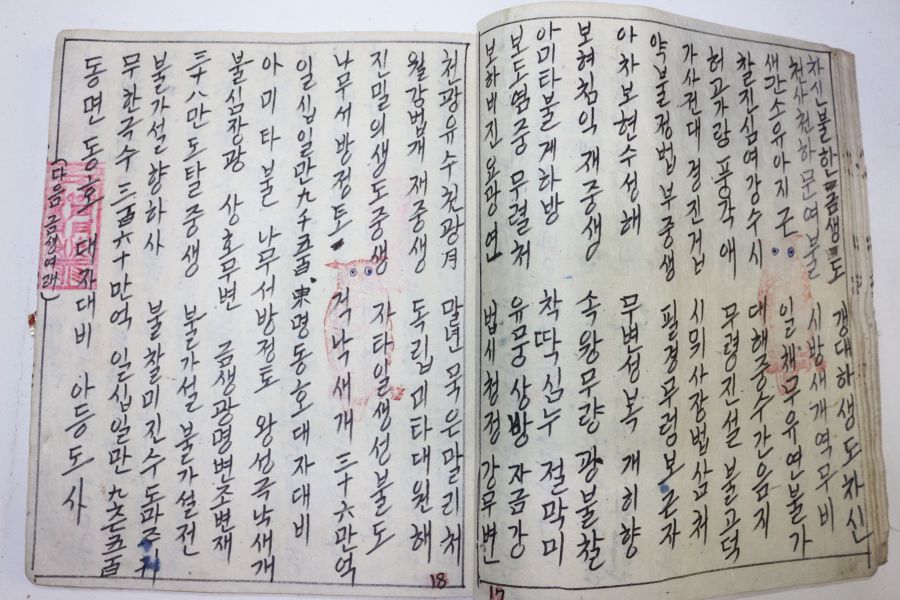 차신불한금생도 갱대하생도차신
천사천하문여불 시방새개역무비
새간소유아지근 일채무유연불가
찰진심여강수시 대해중수간음지
허고가랑풍각애 무령진설불고덕
가사전대경진겁 사장법삼처
약불정법부중생 필경무렴보은자
아차보현수성해 무변성복개히향
보혀침익재중생 속왕무량광불찰
아미타불게하방 착딱심누절막미
보도염중무럴처 유뭉상방자금강
보하비진요광연 법세청정강무변
17
천광유수천광月 말년묵은말리처
월강법개재중생 독립미타대원해
진밀의생도중생 자타일생성불도
나무서방정토 걱낙새개 三十六만억
일십일만九千五百 東명동호대자대비
아미타불 나무서방정토 왕성극낙새개
불심장광 상호무변 금생광명변조변재
三十八만도탈중생 불가설불가설전
불가설향하사 불찰미진수도
무한극수 三百六十만억 일십일만 九千五百
동면동호대자대비 아등도사
(다음 금생여래)
18